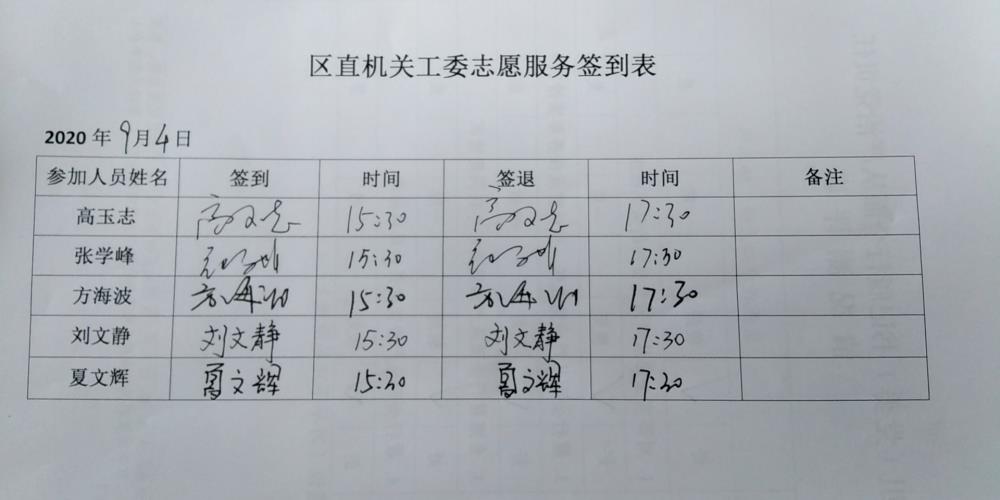 区直机关工委志愿服务签到表
2020 年 9月4日
参加人员姓名 签到 时间 签退 时间 备注
高玉志 高玉志 15:30 高玉志 17:30
张学峰 张学峰 15:30 张学峰 17:30
方海波 方海波 15:30 方海波 17:30
刘文静 刘文静 15:30 刘文静 17:30
夏文辉 夏文辉 15:30 夏文辉 17:30